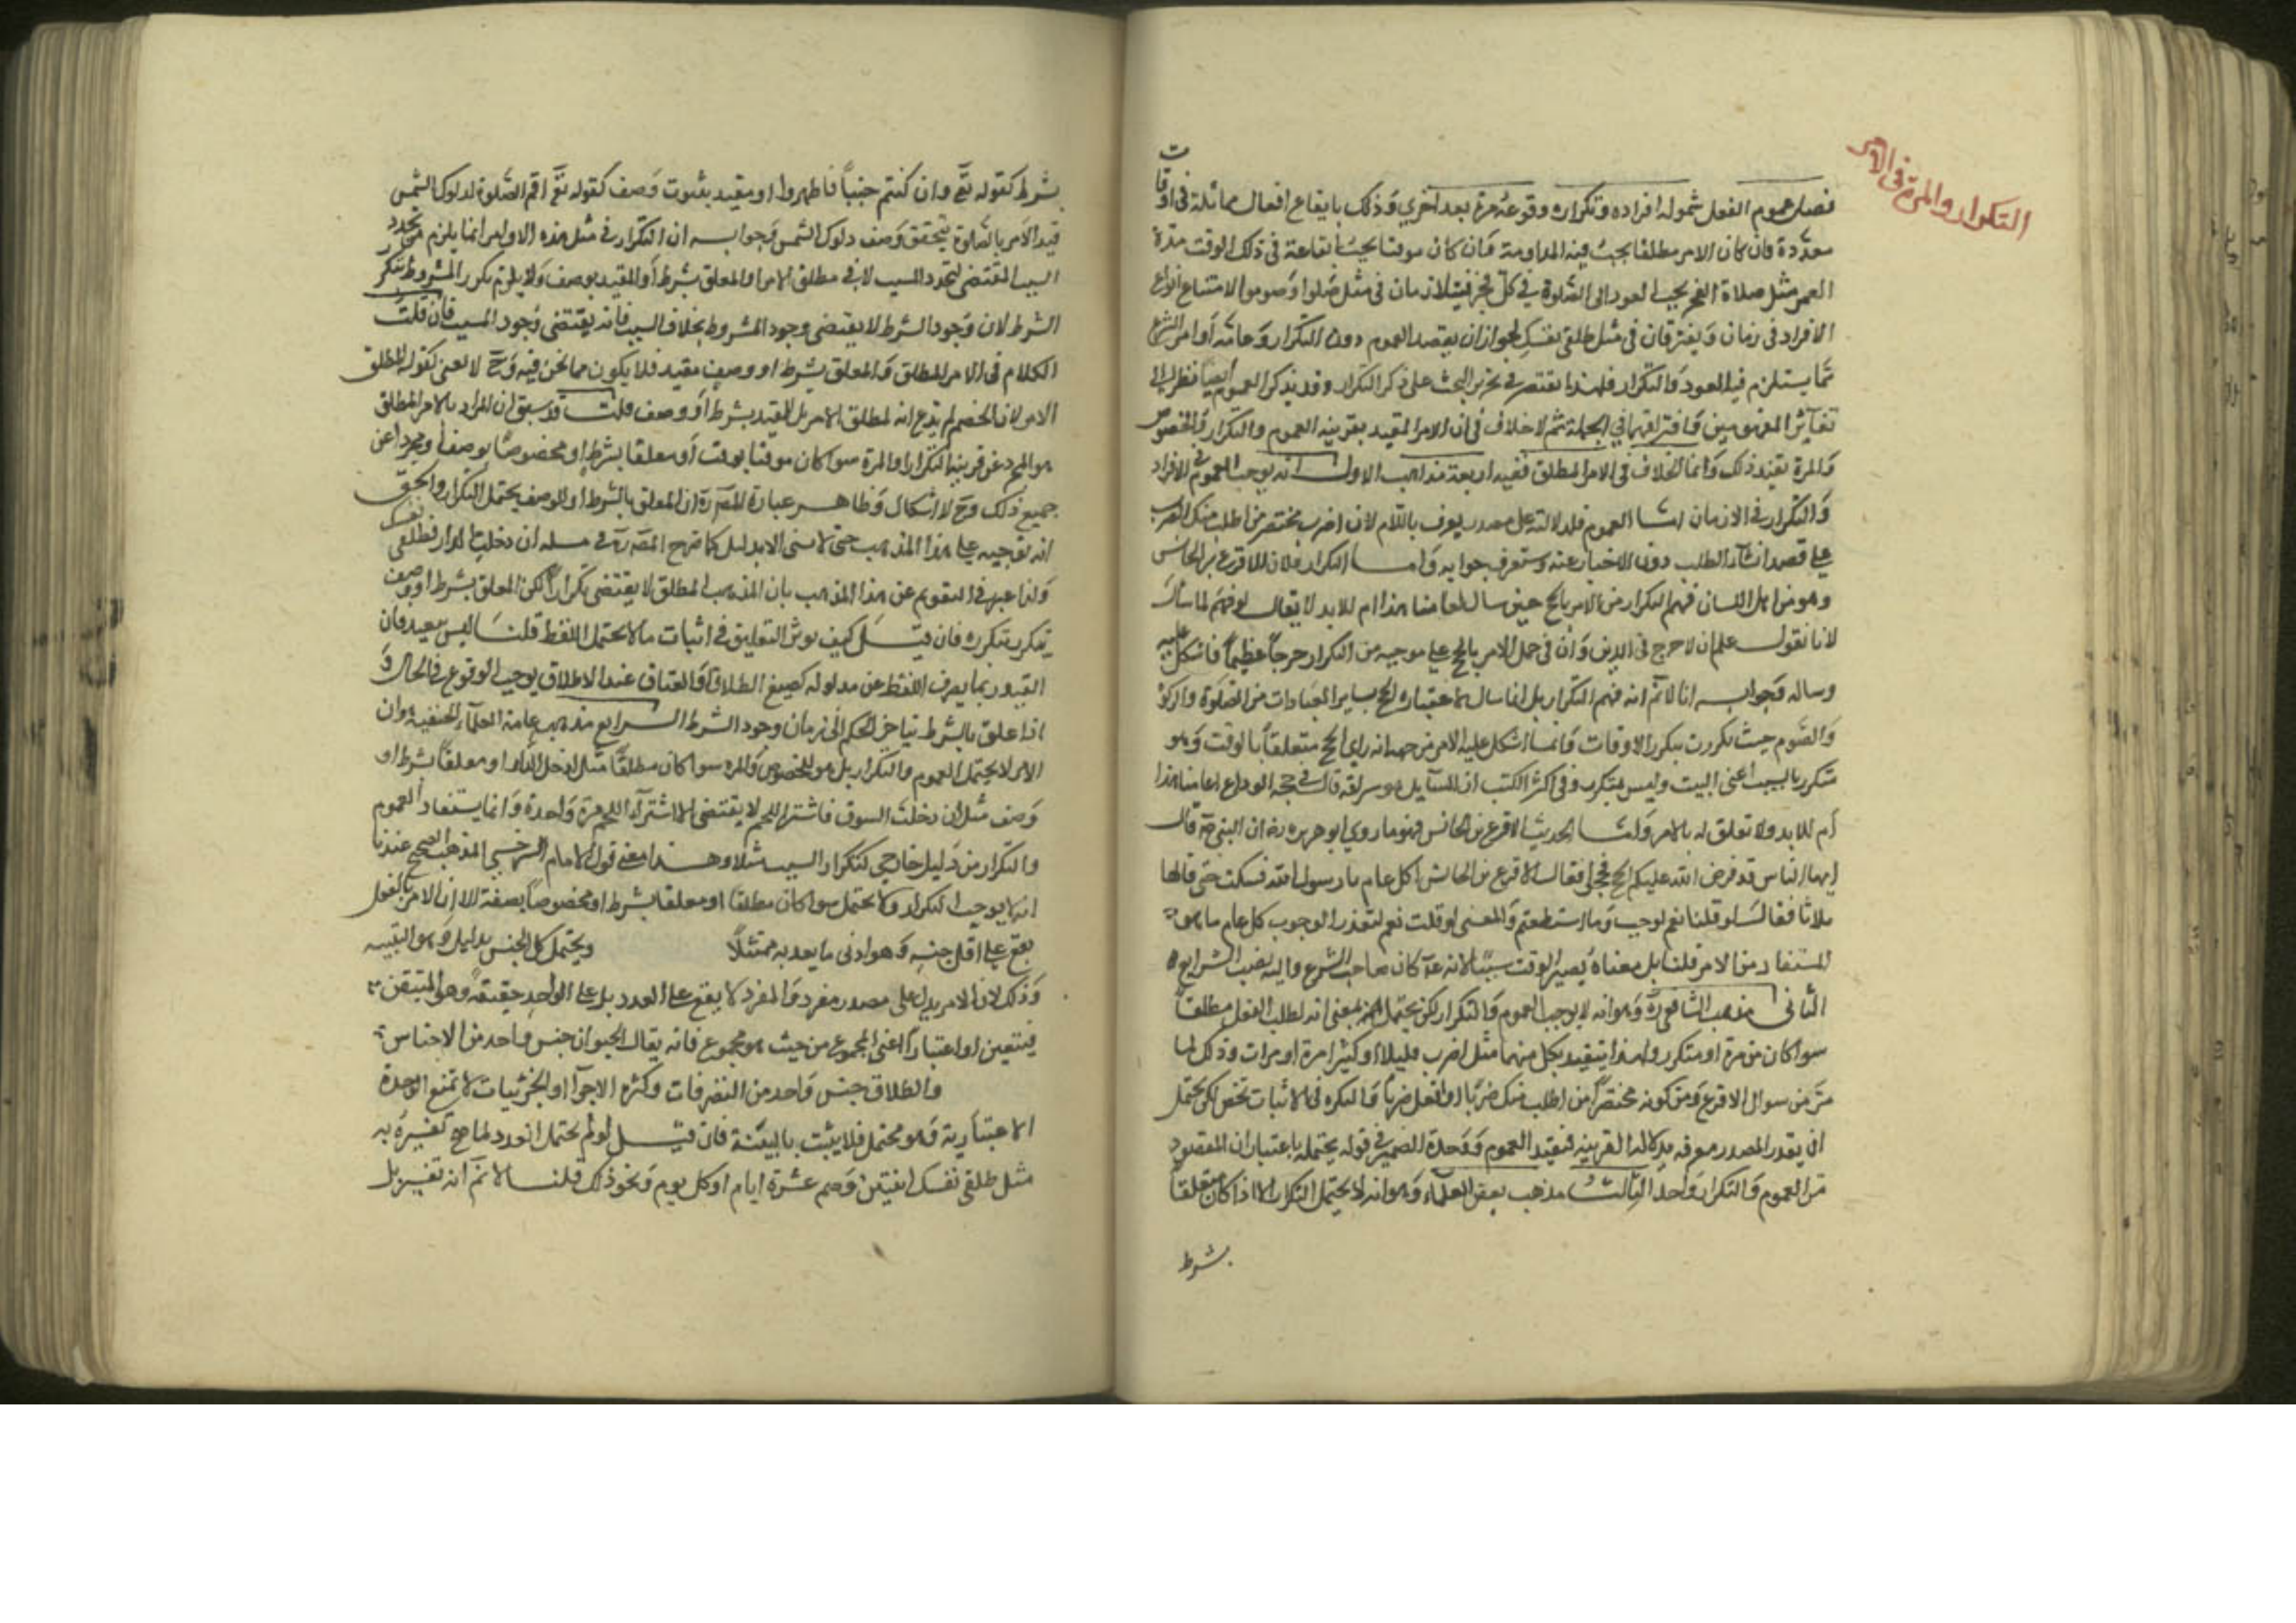 التكرار والمرة في الامر
فصل عموم الفعل شموله افراده وتكراره وقوعه مرة بعد اخري وذلك بايقاع افعال مماثلة في اوقات
متعددة فان كان الامر مطلقا يجب فيه المداومة فان كان موقتا يجب ايقاعه في ذلك الوقت مدة
العمر مثل صلاة الفجر يجب العود الى الصلوة في كل فجر فيتلازمان في مثل صلوا وصوموا لامتناع ايقاع
الافراد في زمان ويفترقان في مثل طلقي نفسك لجواز ان يقصد العموم دون التكرار وعامة اوامر الشرع
مما يستلزم فيه العود والتكرار فلهذا يقتصر في تحرير البحث على ذكر التكرار وقد يذكر العموم ايضا نظرا الى
تغاير المفهومين وافتراقهما في الجملة ثم لا خلاف في ان الامر المقيد بقرينة العموم والتكرار والخصوص
والمرة يفيد ذلك وانما الخلاف في الامر المطلق ففيه اربعة مذاهب الاول انه يوجب العموم في الافراد
والتكرار في الازمان اما العموم فلدلالته على مصدر يعرف باللام لان اضرب مختصر من اطلب منك الضرب
على قصد انشاء الطلب دون الاخبار عنه وستعرف جوابه واما التكرار فلان الاقرع بن الحابس
وهو من اهل اللسان فهم التكرار من الامر بالحج حين سال العامنا هذا ام للابد لا يقال لو فهم لما سال
لانا نقول علم ان لا حرج في الدين وان في حمل الامر بالحج على موجبه من التكرار حرجا عظيما فاشكل عليه
وساله فجوابه انا لا نم انه فهم التكرار بل انما سال لاعتباره الحج بساير العبادات من الصلوة والزكوة
والصوم حيث تكررت بتكرر الاوقات فانما اشكل عليه الامر من جهة انه راي الحج متعلقا بالوقت وهو
متكرر بالسبب اعنى البيت وليس بمتكرر وفي اكثر الكتب ان السآيل هو سراقة قال في حجة الوداع العامنا هذا
ام للابد ولا تعلق له بالامر واما حديث الاقرع بن الحابس فهو ما روي ابو هريره رضه ان النبي عم قال
ايها الناس قد فرض الله عليكم الحج فحجوا فقال الاقرع بن الحابس اكل عام يا رسول الله فسكت حتى قالها
ثلاثا فقال لو قلنا نعم لوجب وما استطعتم والمعنى لو قلت نعم لتقرر الوجوب كل عام ما هو
المستفاد من الامر قلنا بل معناه يصير الوقت سببا لانه عم كان صاحب الشرع واليه نصب الشرايع
الثانى مذهب الشافعي رح وهو انه لا يوجب العموم والتكرار لكن يحتمله بمعنى انه لطلب الفعل مطلقا
سوا كان من مرة او متكرر ولهذا يتقيد بكل منهما مثل اضرب قليلا او كثيرا مرة او مرات وذلك لما
مر من سوال الاقرع ومن كونه مختصرا من اطلب منك ضربا او افعل ضربا والنكره في الاثبات تخص لكن يحتمل
ان يقدر المصدر معرفه بدلالة القرينة فيفيد العموم ووحدة الضمير في قوله يحتمله باعتبار ان المقصود
من العموم والتكرار واحد الثالث مذهب بعض العلماء وهو انه لا يحتمل التكرار الا اذا كان معلقا
بشرط
بشرط كقوله تع وان كنتم جنبا فاطهروا او مقيد بثبوت وصف كقوله تع اقم الصلوة لدلوك الشمس
قيد الامر بالصلوة بتحقق وصف دلوك الشمس وجوابه ان التكرار في مثل هذه الاوامر انما يلزم من تجدد
السبب المقتضى لتجدد المسبب لا في مطلق الامر او المعلق بشرط او المقيد بوصف ولا يلزم تكرر المشروط بتكرر
الشرط لان وجود الشرط لا يقتضى وجود المشروط بخلاف السبب فانه يقتضى وجود المسبب فان قلت
الكلام في الامر المطلق والمعلق بشرط او وصف مقيد فلا يكون مما نحن فيه وح لا معنى لقوله لمطلق
الامر لان الخصم لم يدع انه لمطلق الامر بل للمقيد بشرط او وصف قلت قد سبق ان المراد بالامر المطلق
هو المجرد عن قرينة التكرار او المرة سوا كان موقتا بوقت او معلقا بشرط او مخصوصا بوصف او مجردا عن
جميع ذلك وح لا اشكال وظاهر عبارة المص رح ان المعلق بالشرط او الوصف يحتمل التكرار والحق
انه يوجبه على هذا المذهب حتى لا ينتفى الا بدليل كما صرح المص رح في مسله ان دخلت الدار فطلقي نفسك
ولذا عبر في التقويم عن هذا المذهب بان المذهب المطلق لا يقتضى تكرارا لكن المعلق بشرط او وصف
يتكرر بتكرره فان قيل كيف يوثر التعليق في اثبات ما لا يحتمل اللفظ قلنا ليس ببعيد فان
القيود ربما يصرف اللفظ عن مدلوله كصيغ الطلاق والعتاق عند الاطلاق يوجب الوقوع في الحال و
اذا علق بالشرط يتاخر الحكم الى زمان وجود الشرط الرابع مذهب عامة العلماء الحنفية وان
الامر لا يحتمل العموم والتكرار بل هو للخصوص والمره سوا كان مطلقا مثل ادخل الدار او معلقا بشرط او
وصف مثل ان دخلت السوق فاشتر اللحم لا يقتضى الا اشتراء اللحم مرة واحدة وانما يستفاد العموم
والتكرار من دليل خارجي كتكرار السبب مثلا وهذا معنى قول الامام السرخسي المذهب الصحيح عندنا
انه لا يوجب التكرار ولا يحتمل سوا كان مطلقا او معلقا بشرط او مخصوصا بصفة الا ان الامر بالفعل
يقع على اقل جنسه وهو ادنى ما يعد به ممتثلا ويحتمل كل الجنس بدليل وهو النية
وذلك لان الامر يدل على مصدر مفرد والمفرد لا يقع على العدد بل على الواحد حقيقة وهو المتيقن
فيتعين او اعتبارا اعنى المجموع من حيث هو مجموع فانه يقال الحيوان جنس واحد من الاجناس
والطلاق جنس واحد من التصرفات وكثره الاجزآ او الجزئيات لا تمنع الوحدة
الاعتبارية وهو محتمل فلا يثبت بالنية فان قيل لو لم يحتمل العدد لما صح تفسيره به
مثل طلقي نفسك ثنتين وصم عشرة ايام او كل يوم ونحو ذلك قلنا لا نم انه تفسير بل